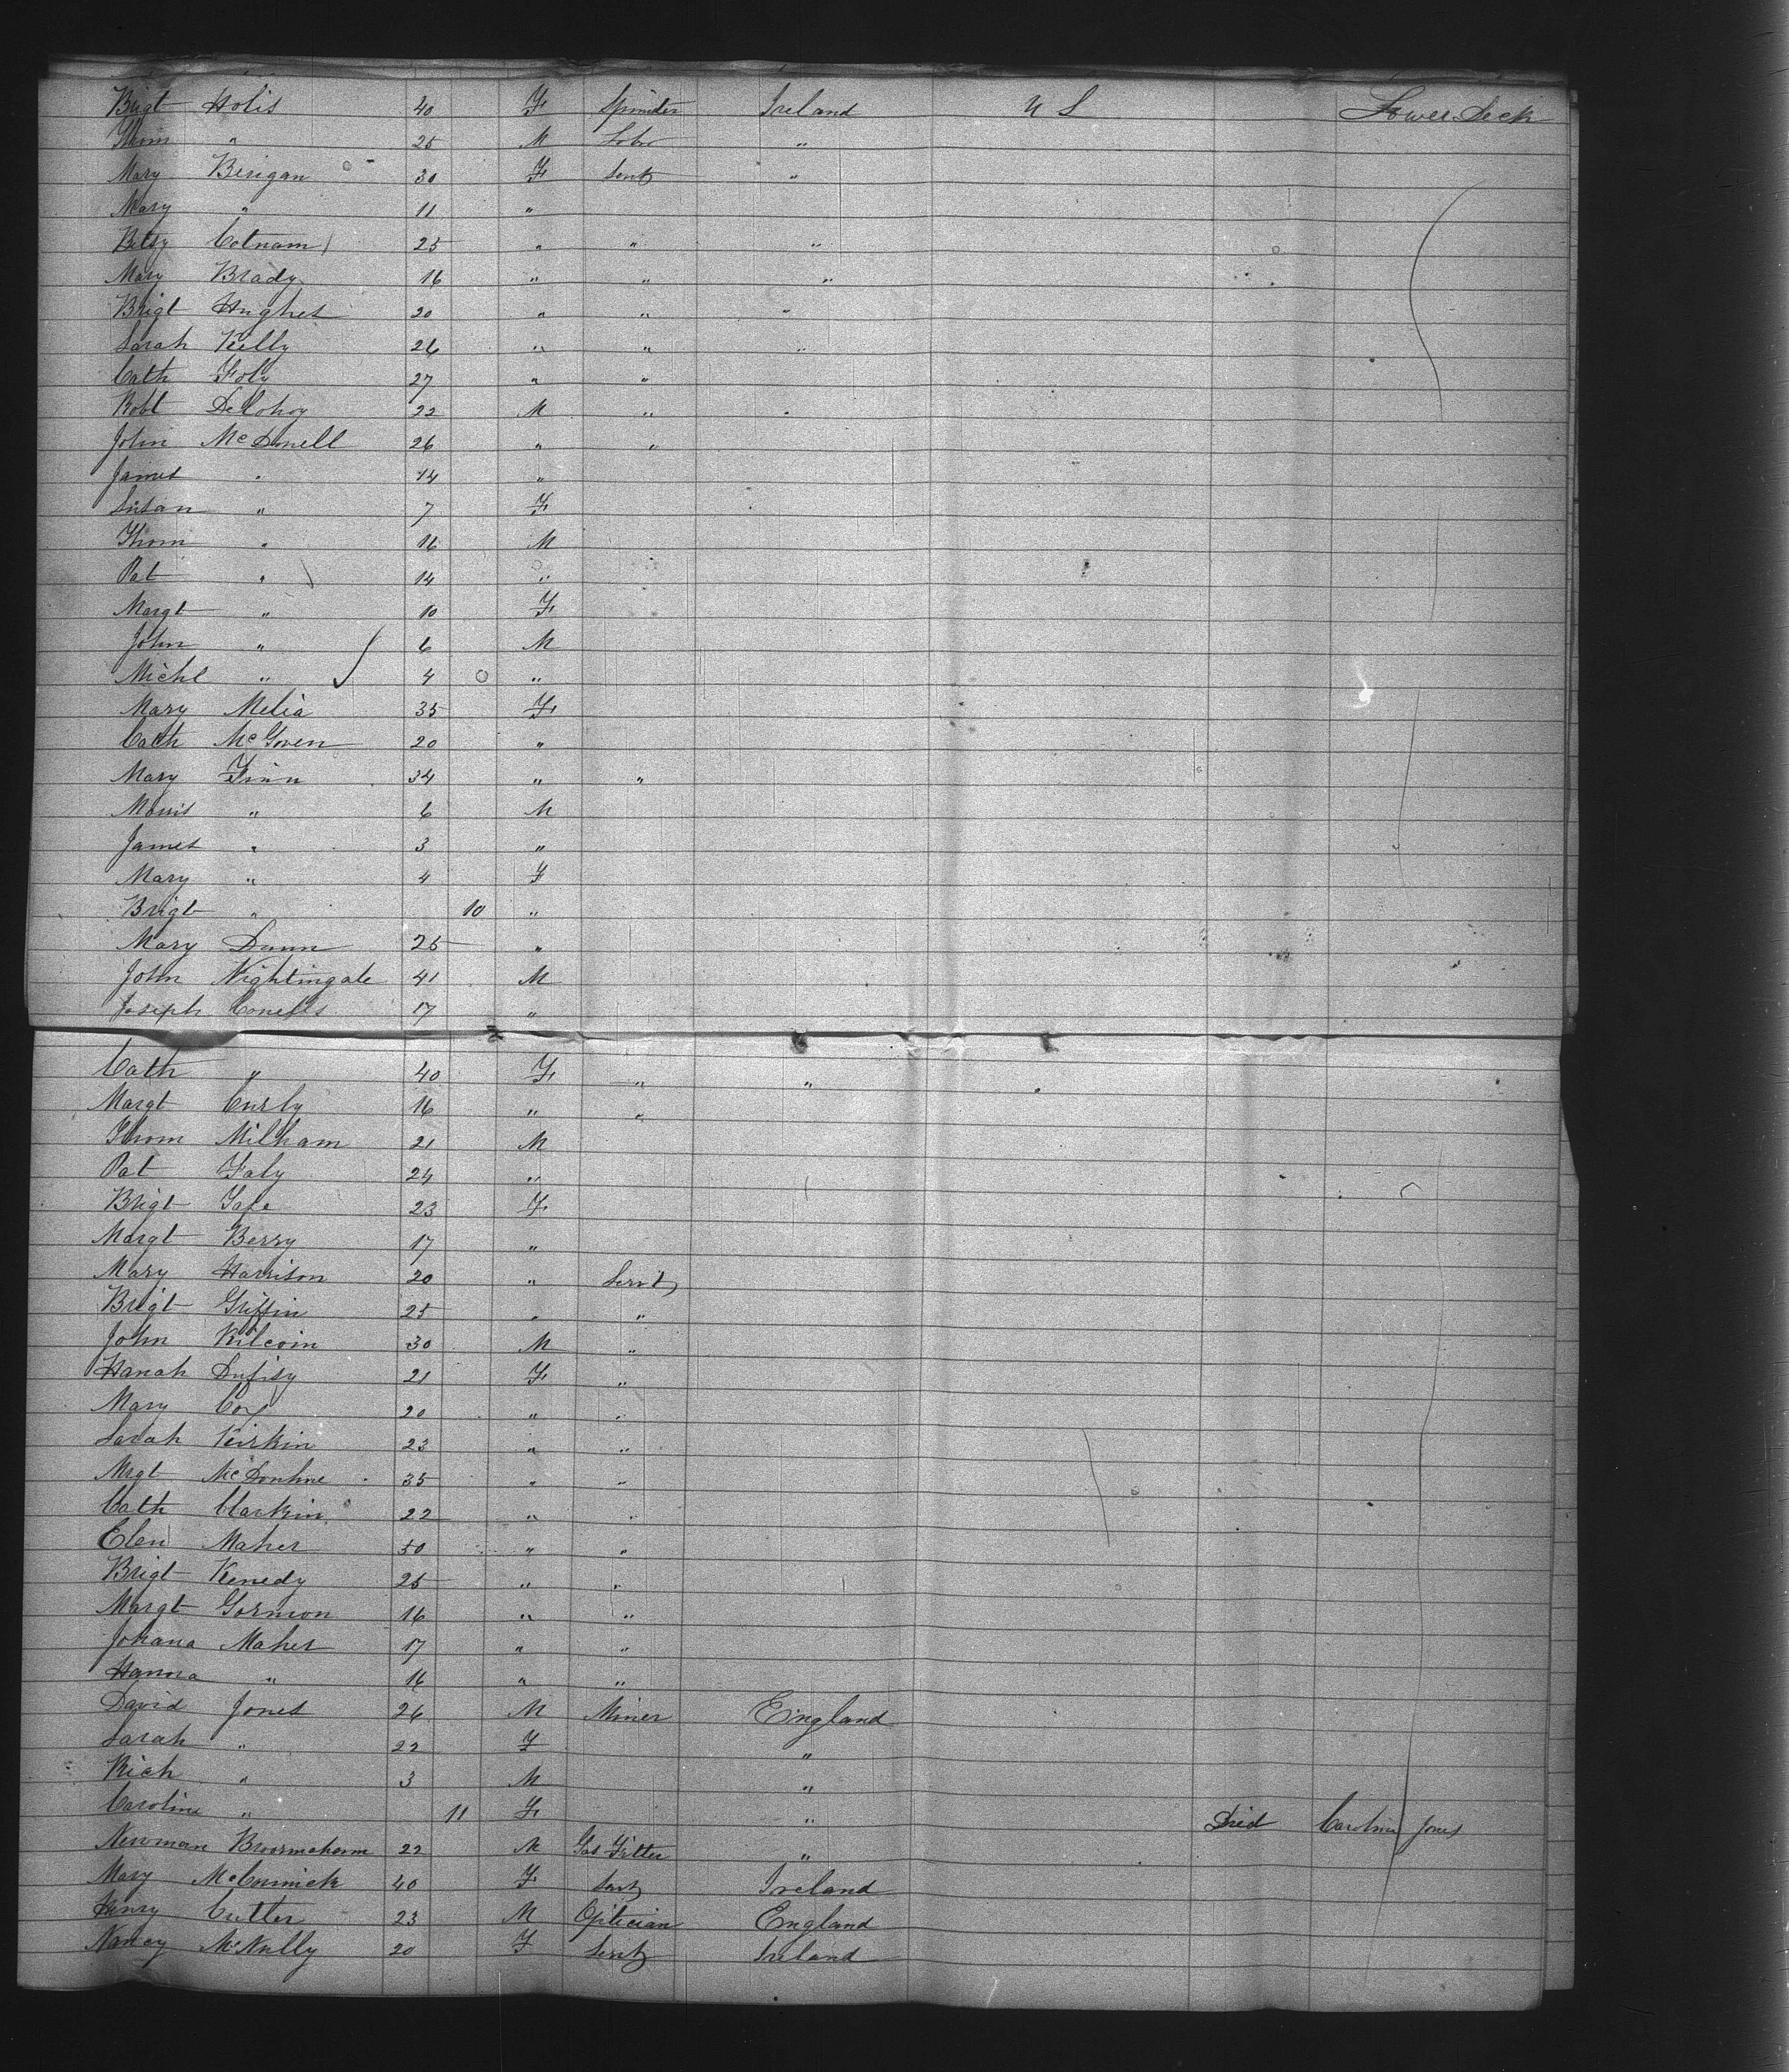 Brigt Holis 40 F Spinster Ireland U S Lower Deck
Thom " 25 M Labr "
Mary Berigan 30 F Servt "
Mary " 11 "
Betsy Cotnam 25 " " "
Mary Brady 16 " " "
Brigt Hughes 20 " " "
Sarah Kelly 26 " " "
Cath Foly 27 " "
Robt 22 M " "
John McDonell 26 " "
James " 14 "
Susan " 7 F
Thom " 16 M
Pat " 14 "
Margt " 10 F
John " 6 M
Michl " 4 "
Mary Melia 35 F
Cath McGoven 20 "
Mary Finn 34 " "
Morris " 6 M
James " 3 "
Mary " 4 F
Brigt " 10 "
Mary Dunn 25 "
John Nightingale 41 M
Joseph 17 "
Cath " 40 F " " "
Margt Curly 16 " "
Thom Milham 21 M
Pat Faly 24 "
Brigt 23 F
Margt Berry 17 "
Mary Harrison 20 " Servt
Brigt Griffin 25 " "
John Kilcoin 30 M "
Hanah 21 F "
Mary Cox 20 " "
Sarah Kirkin 23 " "
Mrgt 35 " "
Cath Clarkin 22 " "
Elen Maher 50 " "
Brigt Kenedy 25 " "
Margt Gormon 16 " "
Johana Maher 17 " "
Hanna " 16 " "
David Jones 26 M Miner England
Sarah " 22 F "
Rich " 3 M "
Caroline " 11 F " Died Caroline Jones
Newman 22 M Gas Fitter "
Mary McCormick 40 F Servt Ireland
Henry Cutler 23 M Optician England
Nancy McNully 20 F Servt Ireland